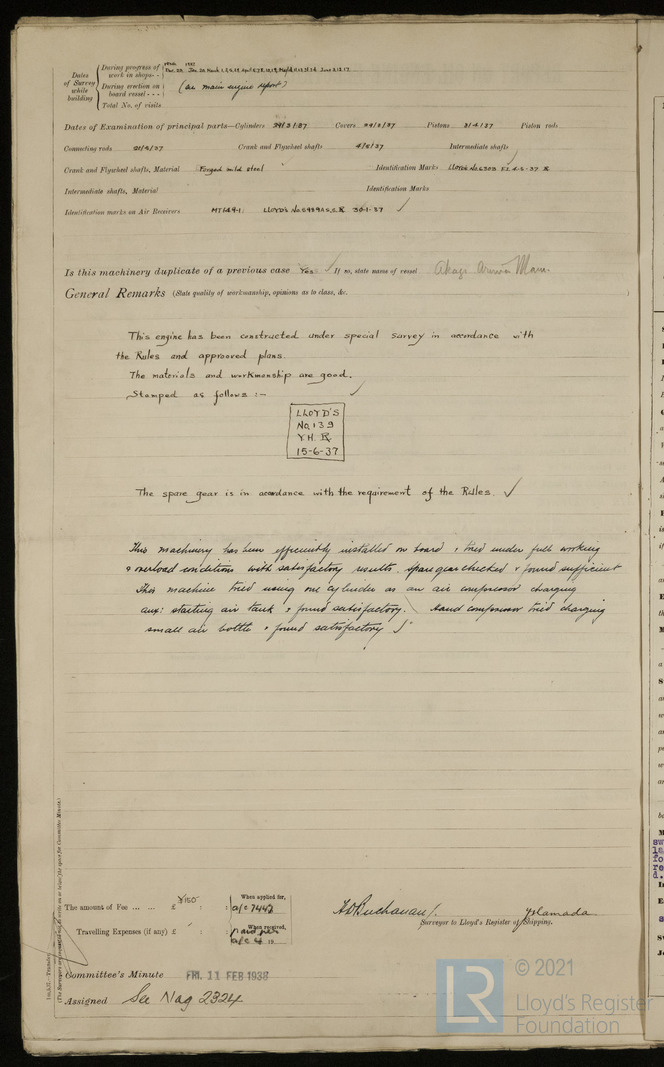 Dates of Survey while building
During progress of work in shops - -
1936 1937
Dec. 20. Jan 20 March
During erection on board vessel - - -
(see main engine report)
Total No. of visits
Dates of Examination of principal parts—Cylinders 29/3/37 Covers 29/3/37 Pistons 3/4/37 Piston rods
Connecting rods 21/4/37 Crank and Flywheel shafts 4/5/37 Intermediate shafts
Crank and Flywheel shafts, Material Forged mild steel Identification Marks Lloyd's No. 6303 4-5-37
Intermediate shafts, Material Identification Marks
Identification marks on Air Receivers LLOYD'S 30-1-37 ✓
Is this machinery duplicate of a previous case Yes ✓ If so, state name of vessel Akagi Maru.
General Remarks (State quality of workmanship, opinions as to class, &c.
This engine has been constructed under special survey in accordance with
the Rules and approoved plans
The materials and workmanship are good.
Stamped as follows :- ✓
LLOYD'S
No. 139
Y.H.
15-6-37
The spare gear is in accordance with the requirement of the Rules. ✓
This machinery has been efficiently installed on board & tried under full working
& overload conditions with satisfactory results. Spare gear checked & found sufficient
This machine tried using one cylinder as an air compressor charging
aux: starting air tank & found satisfactory. Hand compressor tried charging
small air bottle & found satisfactory
The amount of Fee ... ... £ ¥150 : : When applied for, a/c 7442
Travelling Expenses (if any) £ : : When received, 19
H.D. Buchanan Y. Hamada
Surveyor to Lloyd's Register of Shipping.
Committee's Minute FRI. 11 FEB 1938
Assigned See Nag 2324
(The Surveyors are requested not to write on or below the space for Committee Minute.)
© 2021
LR
Lloyd's Register
Foundation